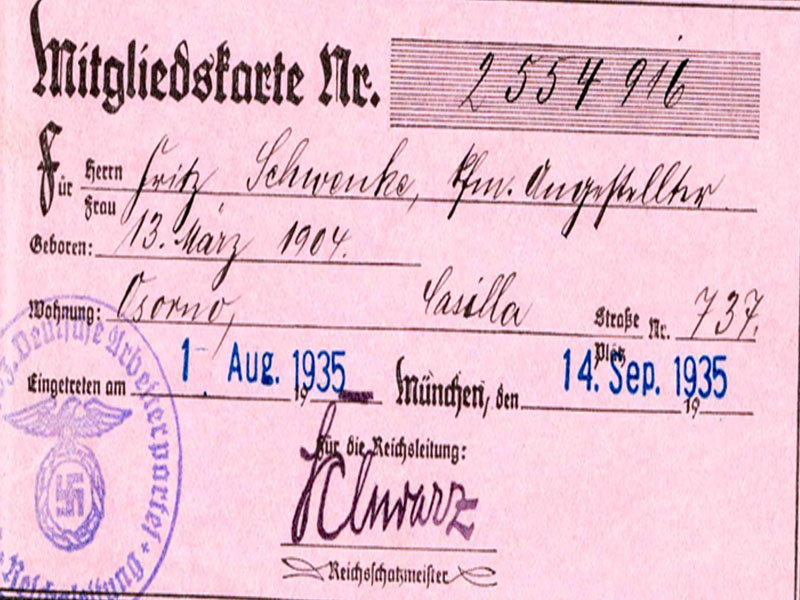 Mitgliedskarte Nr. 2554916
Für Herrn Fritz Schwenke, kfm. Angestellter
Frau
Geboren: 13. März 1904.
Wohnung: Osorno, Casilla Straße Nr. 737.
Platz
Eingetreten am 1 Aug. 1935 München, den 14. Sep. 1935
19 19
Für die Reichsleitung:
Schwarz
Reichsschatzmeister
Deutsche Arbeiterpartei * Reichsleitung